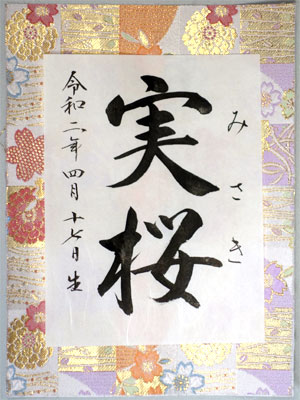 みさき
実桜
令和二年四月十七日生